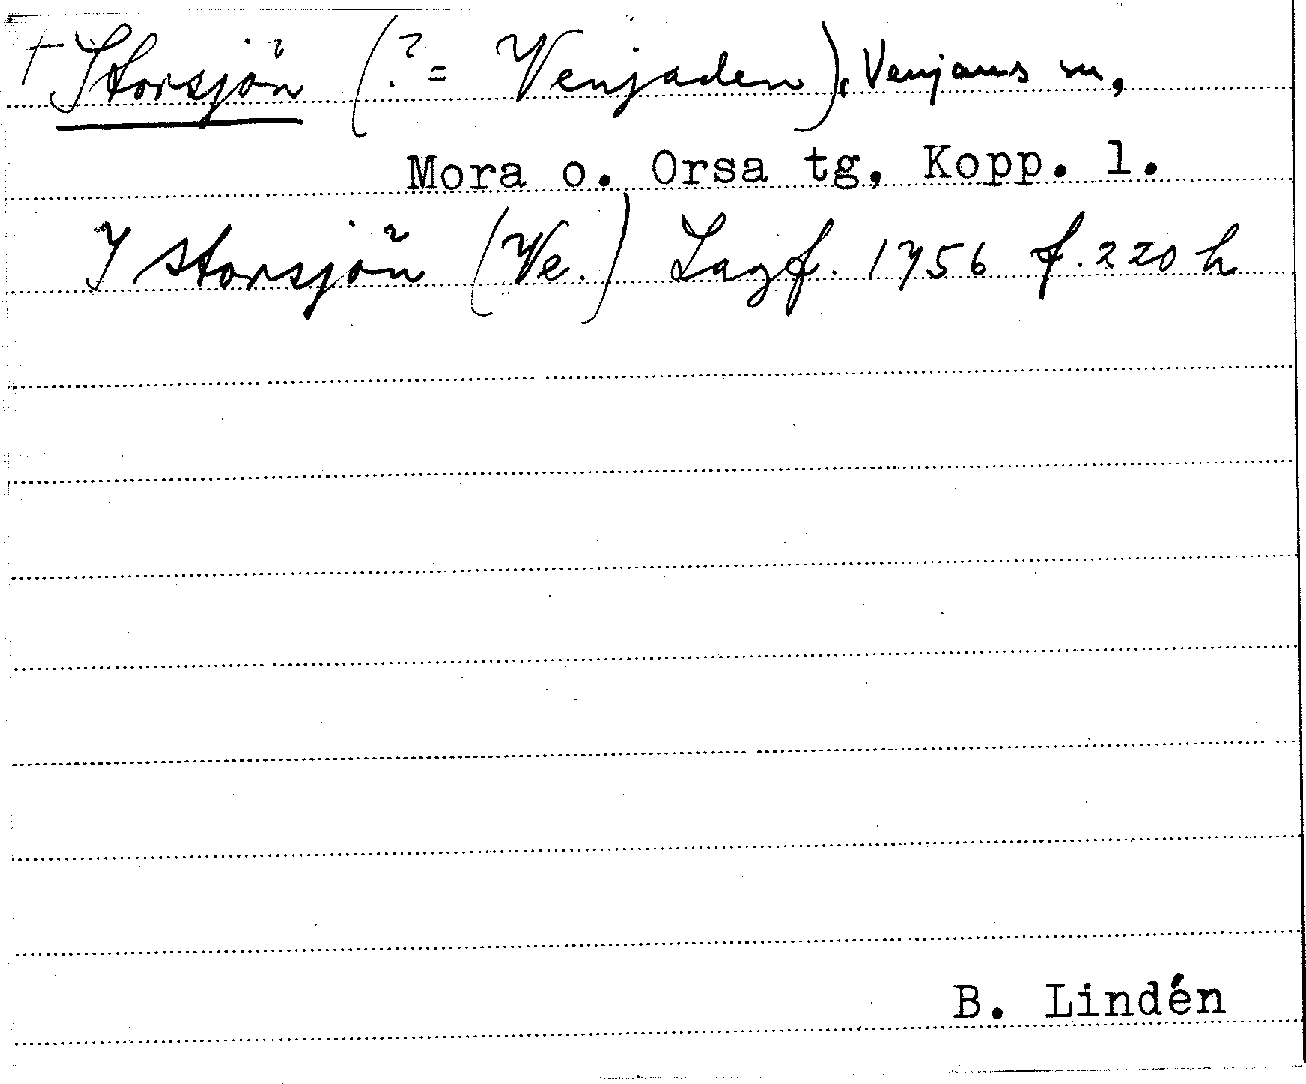 † Storsjön (?= Venjaden), Venjans sn,
Mora o. Orsa tg, Kopp. l.
I storsjön (Ve.) Lagf. 1756 f. 220 h
B. Lindén